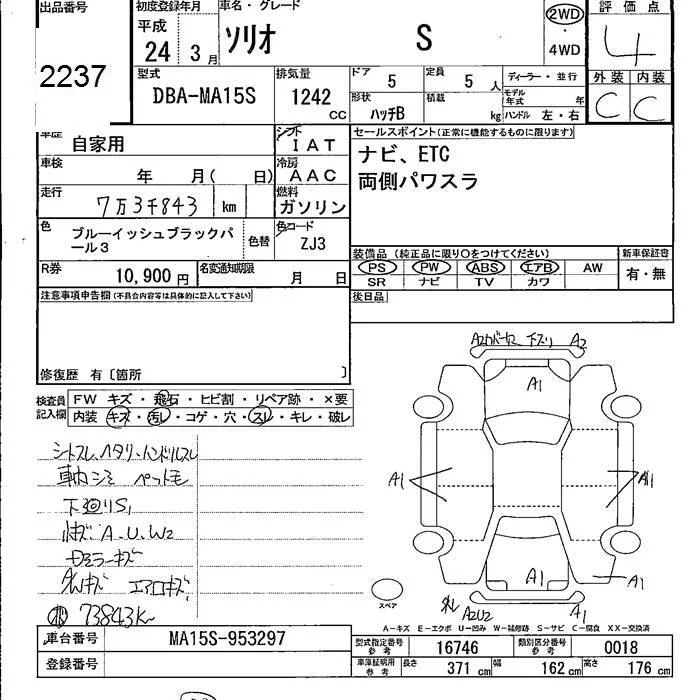 出品番号
2237
初度登録年月
平成
24 3 月
車名・グレード
ソリオ S
2WD
・
4WD
評価点
4
外装 内装
C C
型式
DBA-MA15S
排気量
1242 CC
ドア 5
定員 5 人
形状 ハッチB
積載 kg
ディーラー・並行
モデル年式 年
ハンドル 左・右
車歴 自家用
シフト IAT
車検 年 月( 日)
冷房 AAC
走行 7万3千843 km
燃料 ガソリン
色 ブルーイッシュブラックパール3
色替
色コード ZJ3
R券 10,900 円
名変通知期限 月 日
セールスポイント(正常に機能するものに限ります)
ナビ、ETC
両側パワスラ
装備品(純正品に限り○をつけてください)
PS PW ABS エアB AW
SR ナビ TV カワ
新車保証書
有・無
後日品
注意事項申告欄(不具合内容等は具体的に記入して下さい)
修復歴 有〔箇所 〕
検査員記入欄
FW キズ・飛石・ヒビ割・リペア跡・×要
内装 キズ・汚レ・コゲ・穴・スレ・キレ・破レ
シートスレ、ヘタリ、ハンドルスレ
車内シミ ペット毛
下廻りS1
小キズ A.U.W2
Dミラーキズ
AWキズ エアロキズ
73843K
A2カバーW2 下スリ A2
A1
A1
A1
A1
A1
A2U2 A1
スペア
A-キズ E-エクボ U-凹み W-補修跡 S-サビ C-腐食 XX-交換済
車台番号 MA15S-953297
登録番号
型式指定番号参考 16746
類別区分番号参考 0018
車庫証明用参考 長さ 371 cm 幅 162 cm 高さ 176 cm